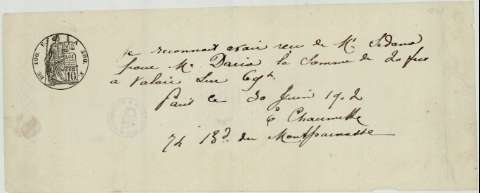 Je reconnait avoir reçu de Mr Sedana
pour Mr Daria la somme de 20 frs
a valoir sur
Paris le 30 Juin 1902
E Chaumette
74 Bd du Montparnasse